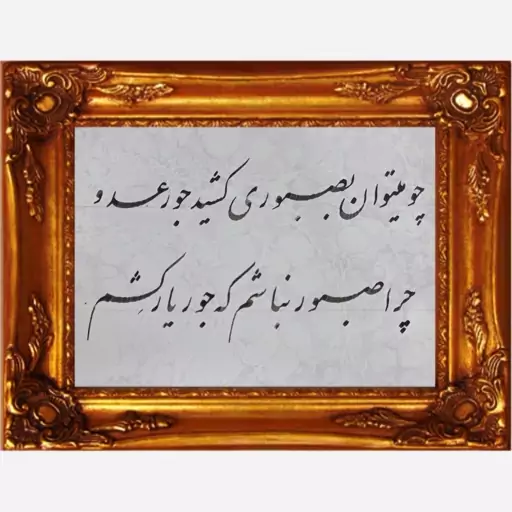 چو میتوان بصبوری کشید جور عدو
چرا صبور نباشم که جور یار کِشم